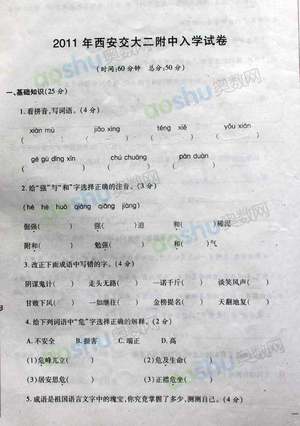 2011 年西安交大二附中入学试卷
(时间:60分钟 总分:50分)
一、基础知识(25 分)
1.看拼音,写词语。(4 分)
xiàn mù jiāo xīng téng xiě yōu xián
( ) ( ) ( ) ( )
gē gǔ dīng xīn chú chuāng pān dēng
( ) ( ) ( )
2.给“强”与“和”字选择正确的注音。(3 分)
(hé hè huò qiáng qiǎng jiàng)
倔强( ) 强( )迫 和( )稀泥
附和( ) 勉强( ) 和( )气
3.改正下面成语中写错的字。(4 分)
阴谋鬼计( ) 走头无路( ) 一诺千斤( ) 谈笑风声( )
甘败下风( ) 一如继往( ) 金榜提名( ) 天翻地复( )
4.给下列词语中“危”字选择正确的解释。(2 分)
A.不安全 B.损害 C.端正 D.高
(1)危峰兀立( ) (2)危及生命( )
(3)居安思危( ) (3)正襟危坐( )
5.成语是祖国语言文字中的瑰宝,你究竟掌握了多少,测测自己。(4 分)